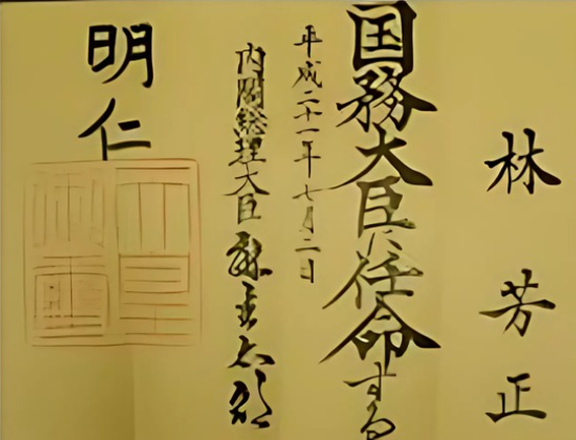 林芳正
国務大臣に任命する
平成二十一年七月二日
内閣総理大臣 麻生太郎
明仁